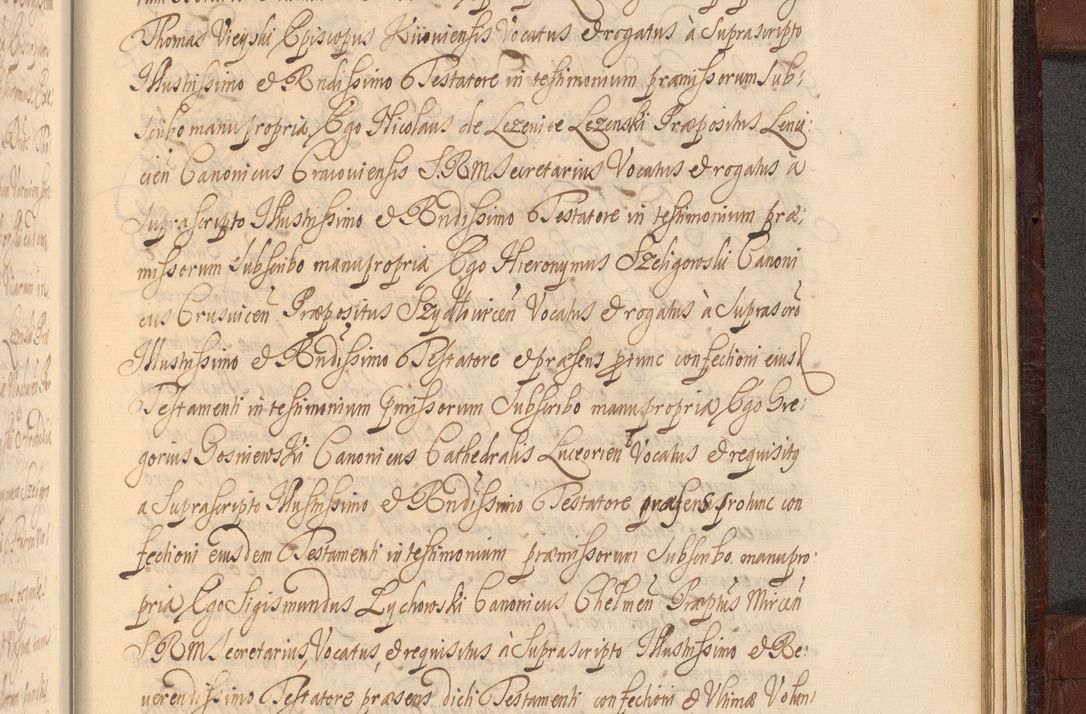 Thomas Uieyski Episcopus Kiioviensis Vocatus et rogatus à Suprascripto
Illustrissimo et Rndissimo Testatore in testimonium praemissorum Sub:
scribo manu propria, Ego Nicolaus de Lezenice Lezenski Praepositus Lenci:
cien Canonicus Cracoviensis S.R.M. Secretarius Vocatus et rogatus à
Suprascripto Illustrissimo et Rndissimo Testatore in testimonium prae:
missorum Subscribo manu propria, Ego Hieronymus Szeligowski Canoni
cus Crusvicen Praepositus Szydlovicen Vocatus et rogatus à Suprascro
Illustrissimo et Rndissimo Testatore et praesens protunc confectioni eius
Testamenti in testimonium pmissorum Subscribo manu propria, Ego Gre:
gorius Gosniewski Canonicus Cathedralis Luceorien Vocatus et requisitg
a Suprascripto Illustrissimo et Rndissimo Testatore praesens protunc con
fectioni eiusdem Testamenti in testimonium praemissorum Subscribo manu pro:
pria, Ego Sigismundus Lychowski Canonicus Chelmen Praeptus Mircen
S.R.M. Secretarius, Vocatus, et requisitus à Suprascripto Illustrissimo et Re:
verendissimo Testatore praesens dicti Testamenti confectioni et Ultimae Volun: